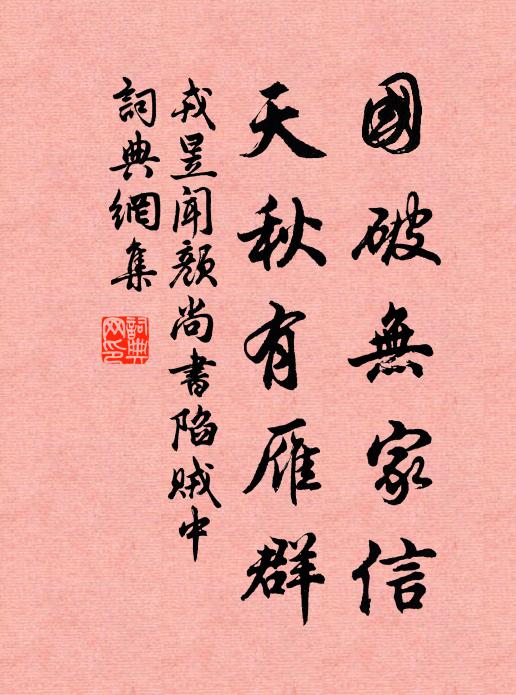 國破無家信
天秋有雁群
戎昱聞顏尚書陷賊中
詞典網集
詞典網印